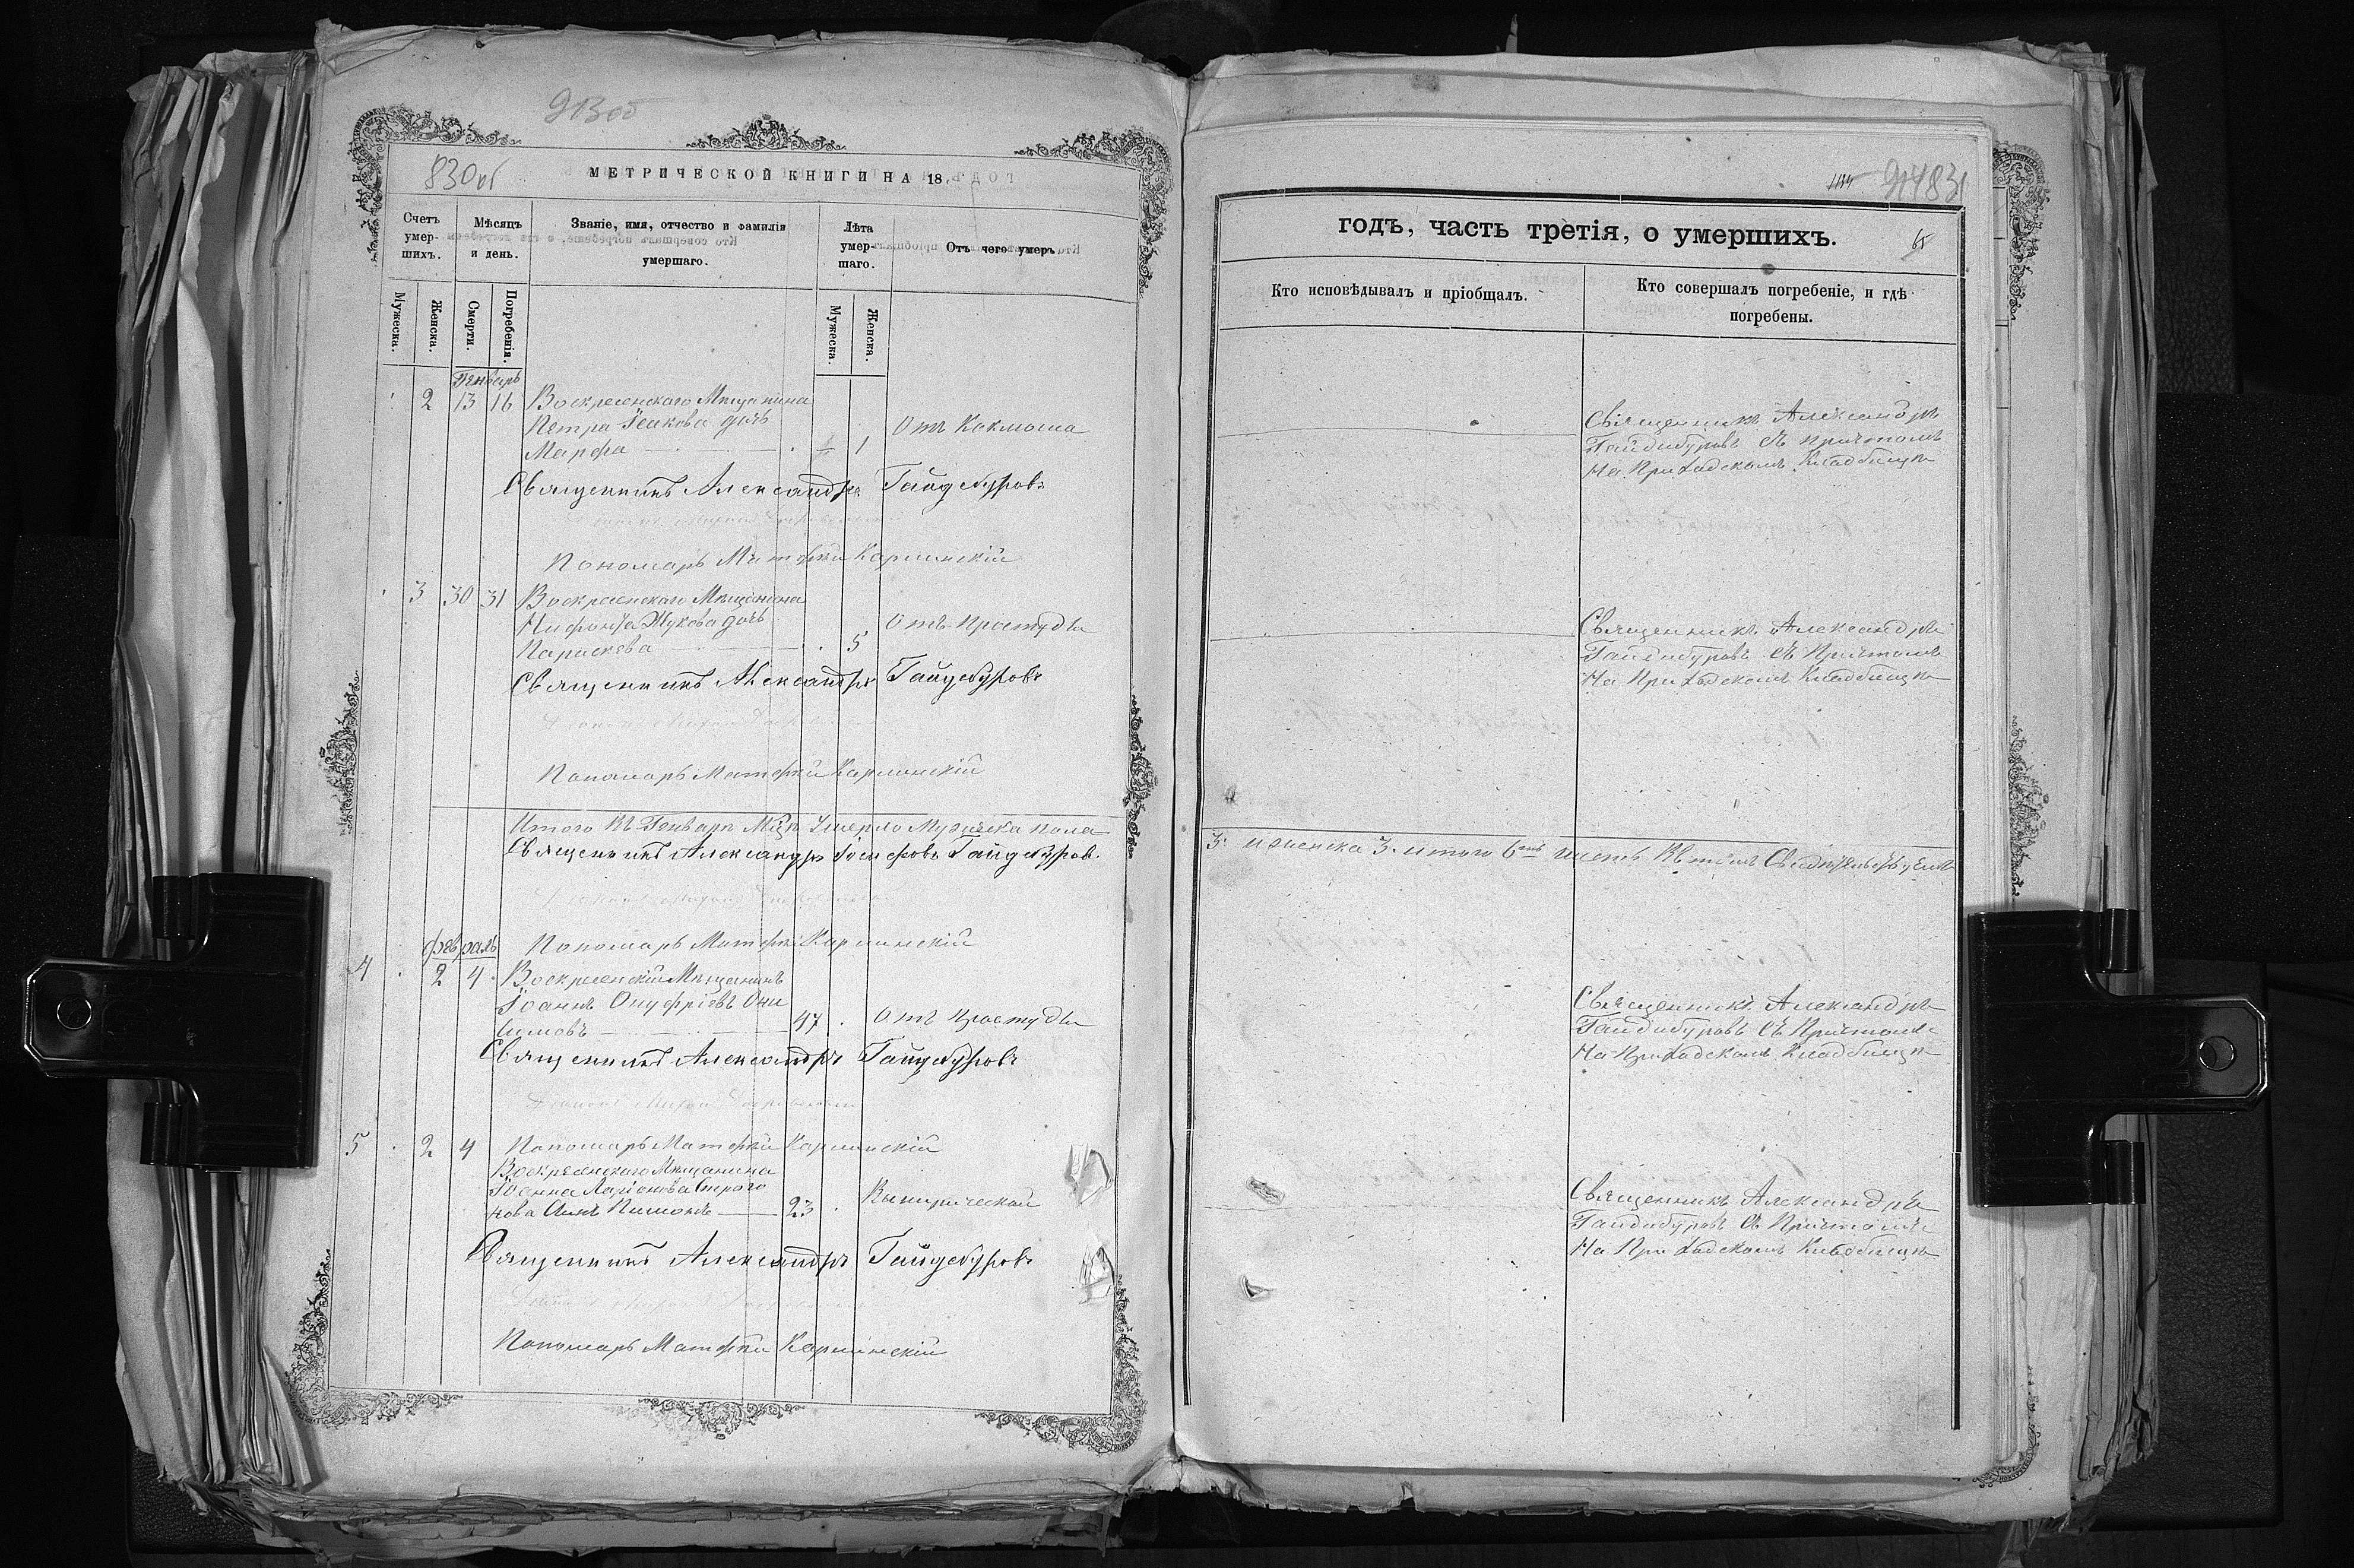 913 об
830 об
МЕТРИЧЕСКОЙ КНИГИ НА 18
Счетъ умер-шихъ.
Мѣсяцъ и день.
Званіе, имя, отчество и фамилія умершаго.
Лѣта умер-шаго.
Отъ чего умеръ.
Мужеска.
Женска.
Смерти.
Погребенія.
Мужеска.
Женска.
Генварь
2 13 16 Воскресенскаго Мѣщанина
Петра дочь
Марфа 1 Отъ Коклюша
Священникъ Александръ Гайдебуровъ
Пономарь Матѳей Карминскій
3 30 31 Воскресенскаго Мѣщанина
Нифонта Жукова дочь
Параскева 5 Отъ простуды
Священникъ Александръ Гайдебуровъ
Пономарь Матѳей Карминскій
Итого въ Генварѣ Мцѣ Умерло Мужеска пола
Священникъ Александръ Іосифовъ Гайдебуровъ.
Февраль
Пономарь Матѳей Карминскій
4 2 4 Воскресенскій Мѣщанинъ
Іоаннъ Онуфріевъ Они
симовъ 47 Отъ простуды
Священникъ Александръ Гайдебуровъ
5 2 4 Пономарь Матѳей Карминскій
Воскресенскаго Мѣщанина
Іоанна Ларіонова Строго
нова Сынъ 23
Священникъ Александръ Гайдебуровъ
Пономарь Матѳей Карминскій
914 831
годъ, часть третія, о умершихъ.
65
Кто исповѣдывалъ и пріобщалъ.
Кто совершалъ погребеніе, и гдѣ погребены.
Священникъ Александръ
Гайдебуровъ съ причтомъ
На Приходскомъ Кладбищѣ
Священникъ Александръ
Гайдебуровъ съ Причтомъ
На Приходскомъ Кладбищѣ
3. и женска 3. итого 6ть въ томъ Свидѣтельствуемъ
Священникъ Александръ
Гайдебуровъ съ Причтомъ
На Приходскомъ Кладбищѣ
Священникъ Александръ
Гайдебуровъ съ Причтомъ
На Приходскомъ Кладбищѣ